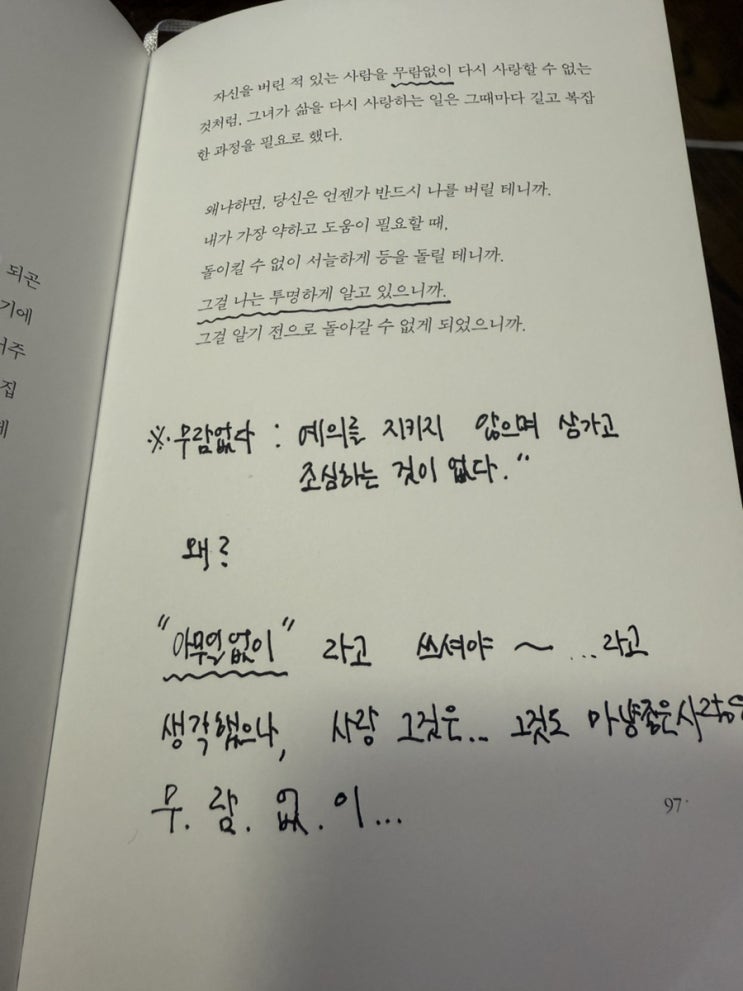 자신을 버린 적 있는 사람을 무람없이 다시 사랑할 수 없는
것처럼, 그녀가 삶을 다시 사랑하는 일은 그때마다 길고 복잡
한 과정을 필요로 했다.
왜냐하면, 당신은 언젠가 반드시 나를 버릴 테니까.
내가 가장 약하고 도움이 필요할 때,
돌이킬 수 없이 서늘하게 등을 돌릴 테니까.
그걸 나는 투명하게 알고 있으니까.
그걸 알기 전으로 돌아갈 수 없게 되었으니까.
되곤
기에
집
※·무람없다 : 예의를 지키지 않으며 삼가고
조심하는 것이 없다."
왜?
"아무일없이" 라고 쓰셔야 ~ ...라고
생각했으나, 사랑 그것은... 그것도 마냥좋은사람을
무.람.없.이...
97